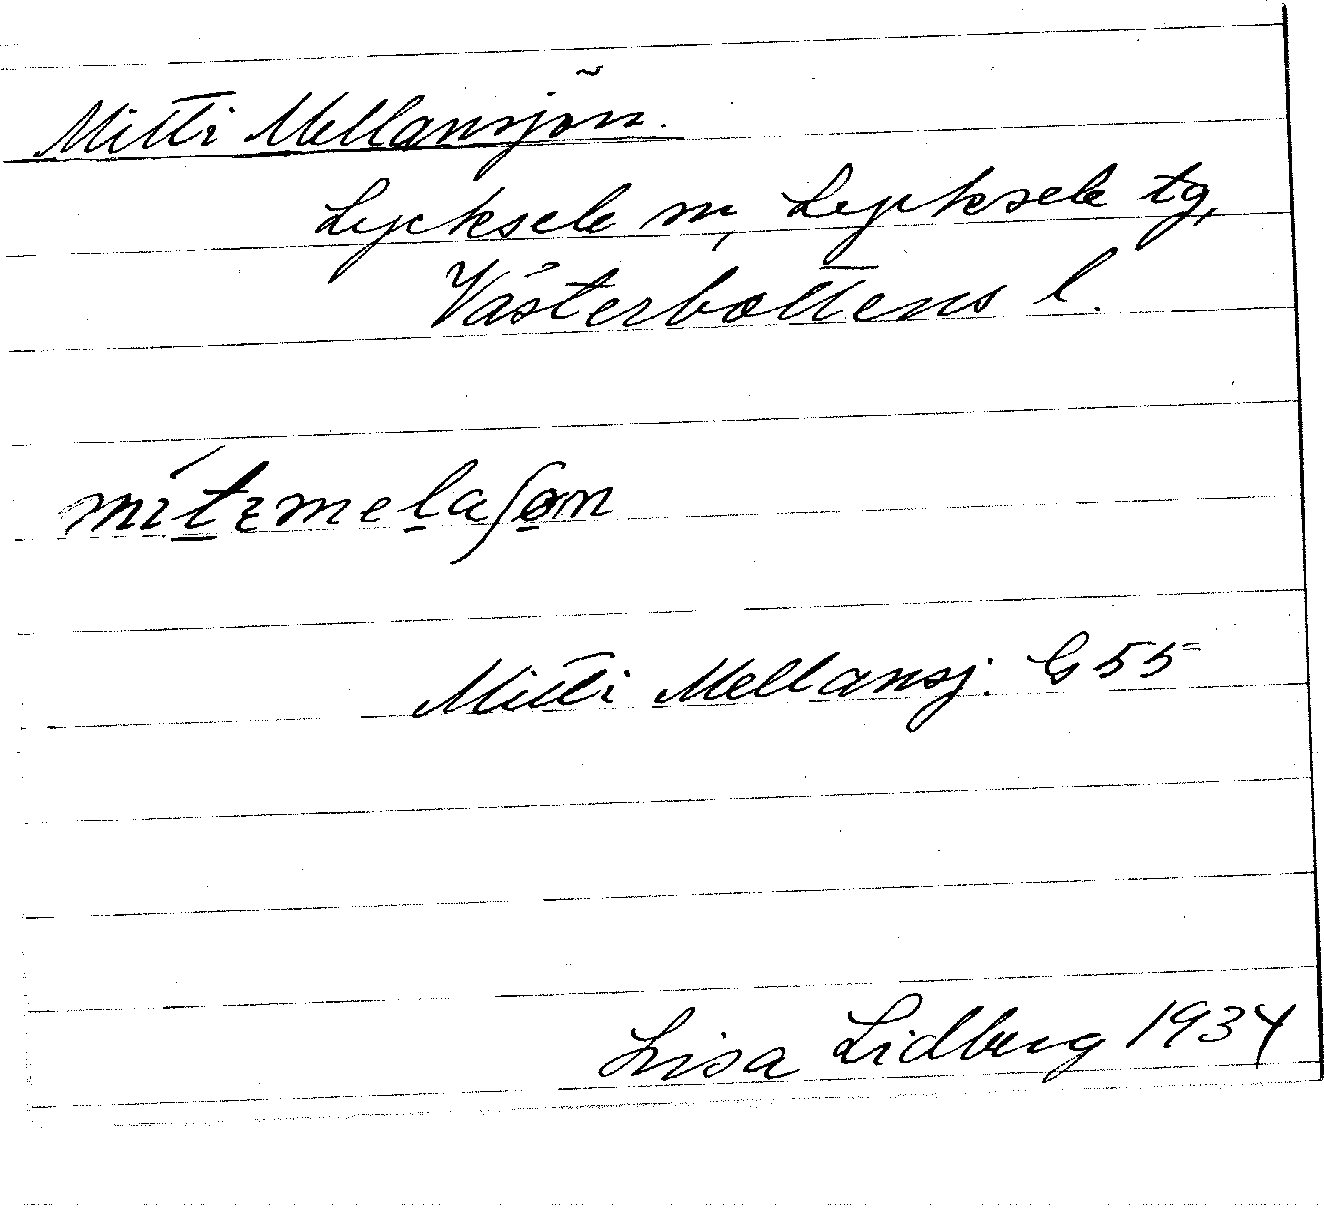 Mitti Mellansjön.
Lycksele m, Lycksele tg,
Västerbottens l.
mítımelaʃøn
Mitti Mellansj. G 55
Lisa Lidberg 1934